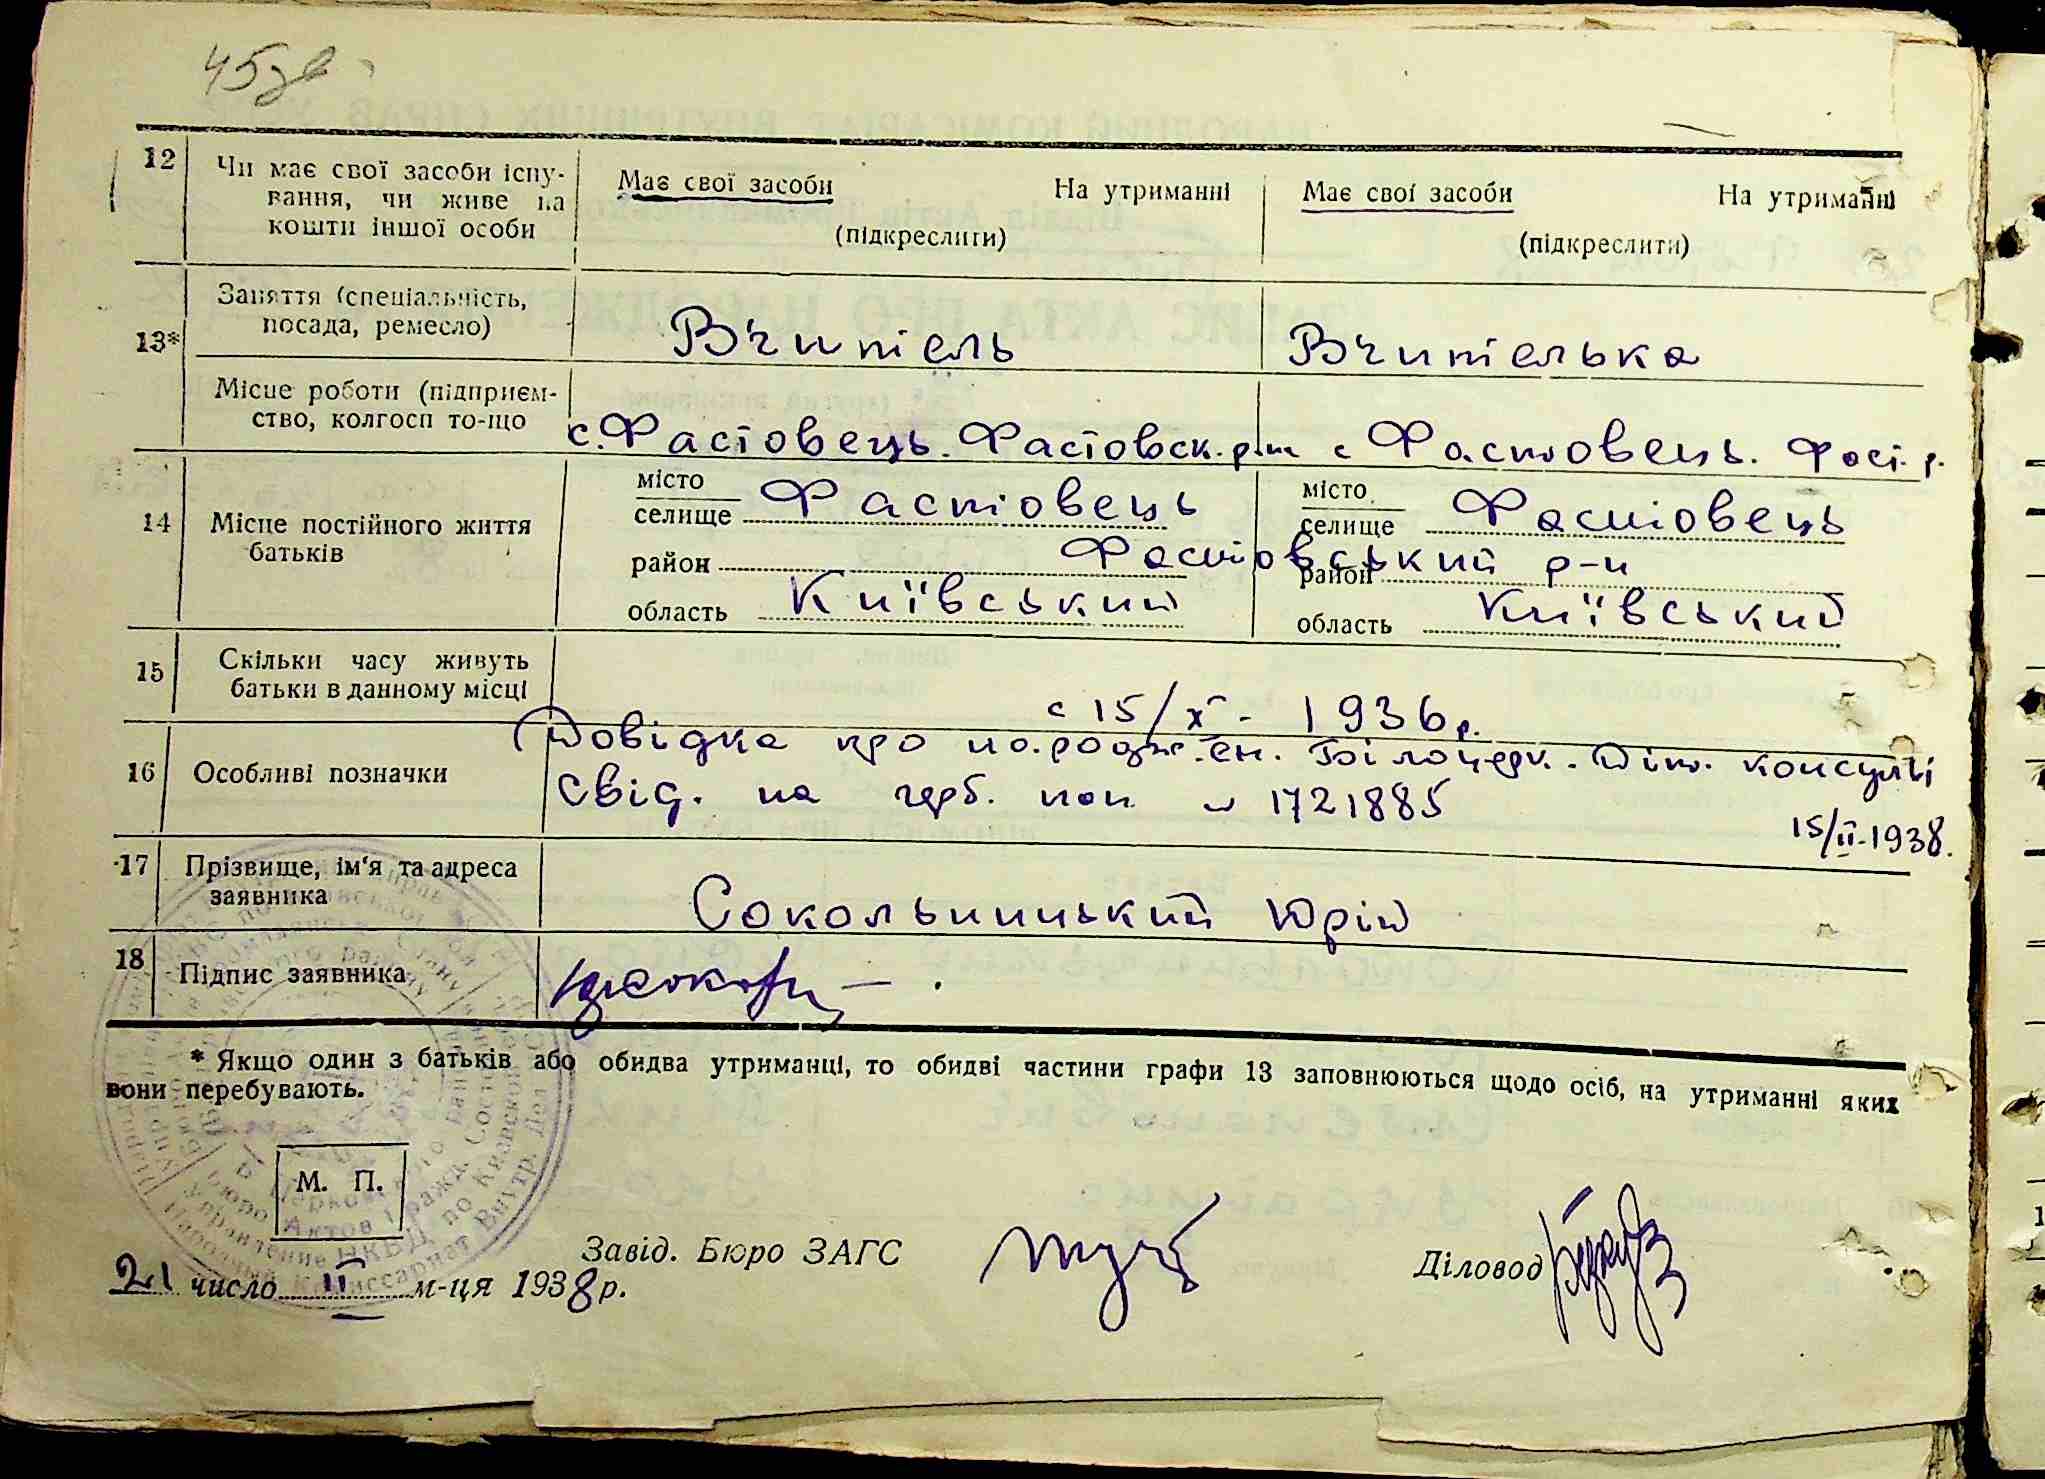 45зв
12 Чи має свої засоби існу-
вання, чи живе на
кошти іншої особи
Має свої засоби На утриманні
(підкреслити)
Має свої засоби На утриманні
(підкреслити)
13* Заняття (спеціальність,
посада, ремесло)
Вчитель Вчителька
Місце роботи (підприєм-
ство, колгосп то-що
с. Фастовець. Фастовск. р-н с Фастовець. Фаст. р.
14 Місце постійного життя
батьків
місто
селище Фастовець
район Фастовський р-н
область Київський
місто
селище Фастовець
район
область Київський
15 Скільки часу живуть
батьки в данному місці
с 15/X - 1936р.
16 Особливі позначки
Довідка про народжен. Білоцерк. Дит. консульт
Свід. на герб. пап. № 1721885
15/II-1938.
17 Прізвище, ім'я та адреса
заявника
Сокольницький Юрій
18 Підпис заявника
* Якщо один з батьків або обидва утриманці, то обидві частини графи 13 заповнюються щодо осіб, на утриманні яких
вони перебувають.
М. П.
21 число II м-ця 1938 р.
Завід. Бюро ЗАГС
Діловод